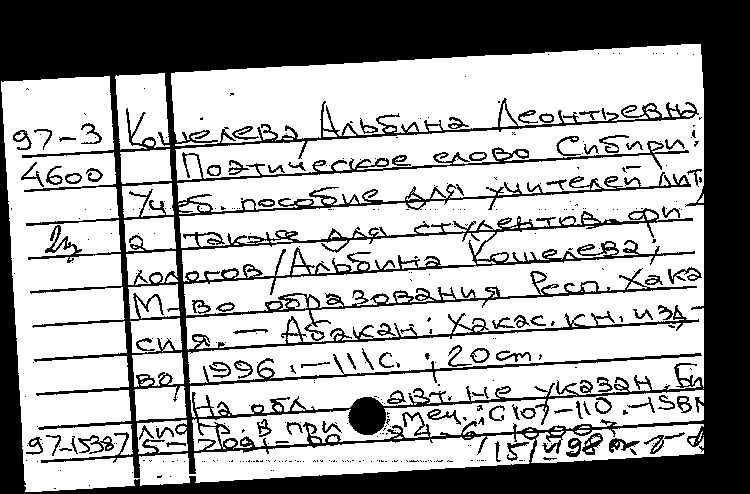 97-3 Кошелева, Альбина Леонтьевна
4600 Поэтическое слово Сибири:
Учеб. пособие для учителей лит.,
2ц а также для студентов-фи
лологов / Альбина Кошелева;
М-во образования Респ. Хака
сия. — Абакан: Хакас. кн. изд-
во, 1996. — 111 с.; 20 см.
На обл. авт. не указан. Би
блиогр. в примеч.: С 107-110. — ISBN
97-15387 5-7091-00 24-6,